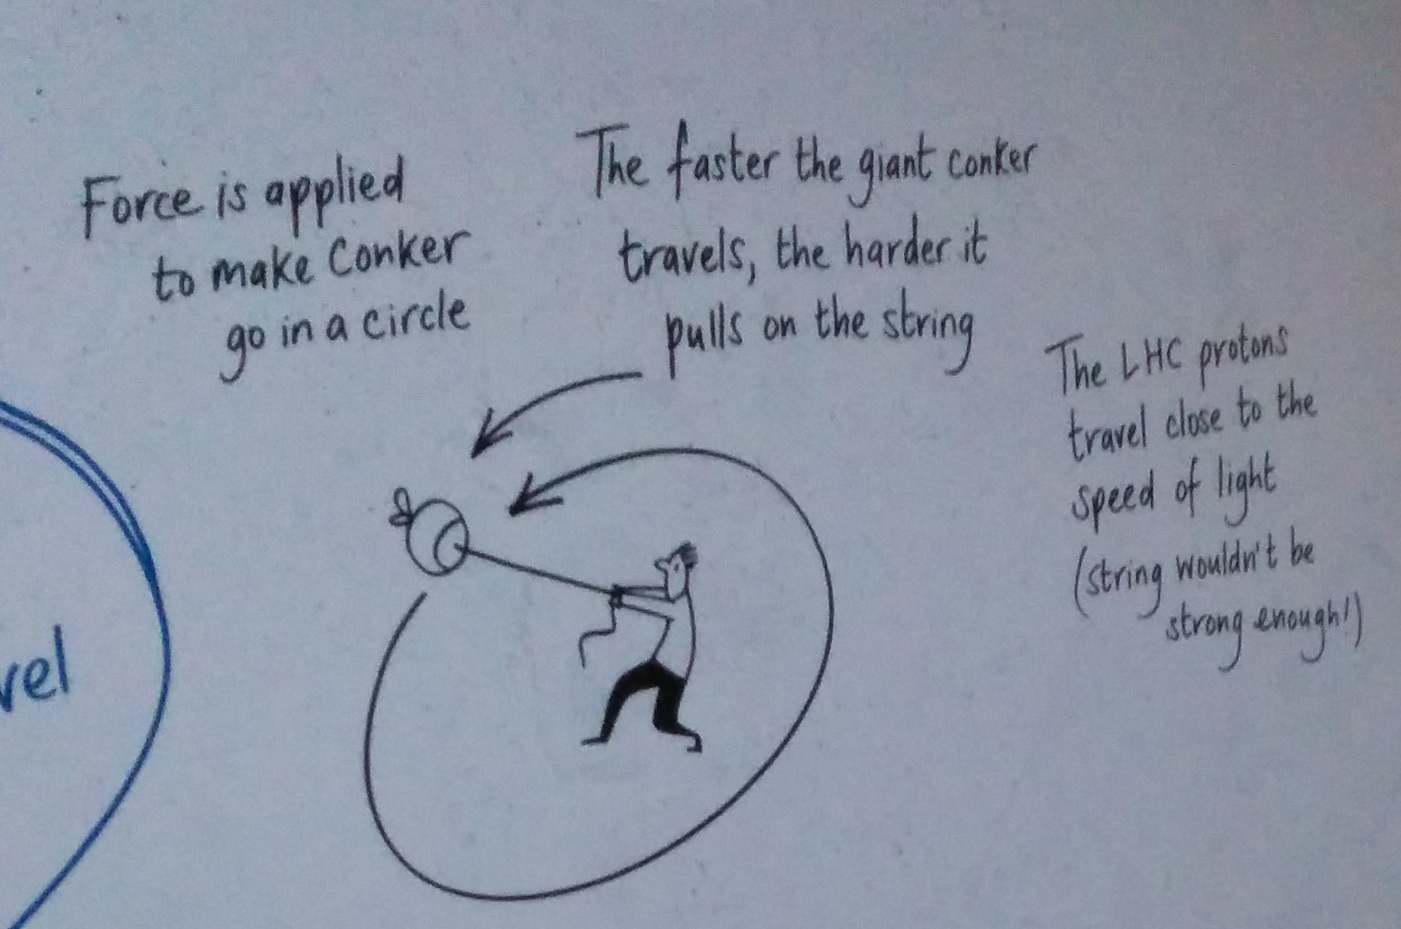 Force is applied
to make Conker
go in a circle
The faster the giant conker
travels, the harder it
pulls on the string
The LHC protons
travel close to the
speed of light
(string wouldn't be
strong enough!)
vel